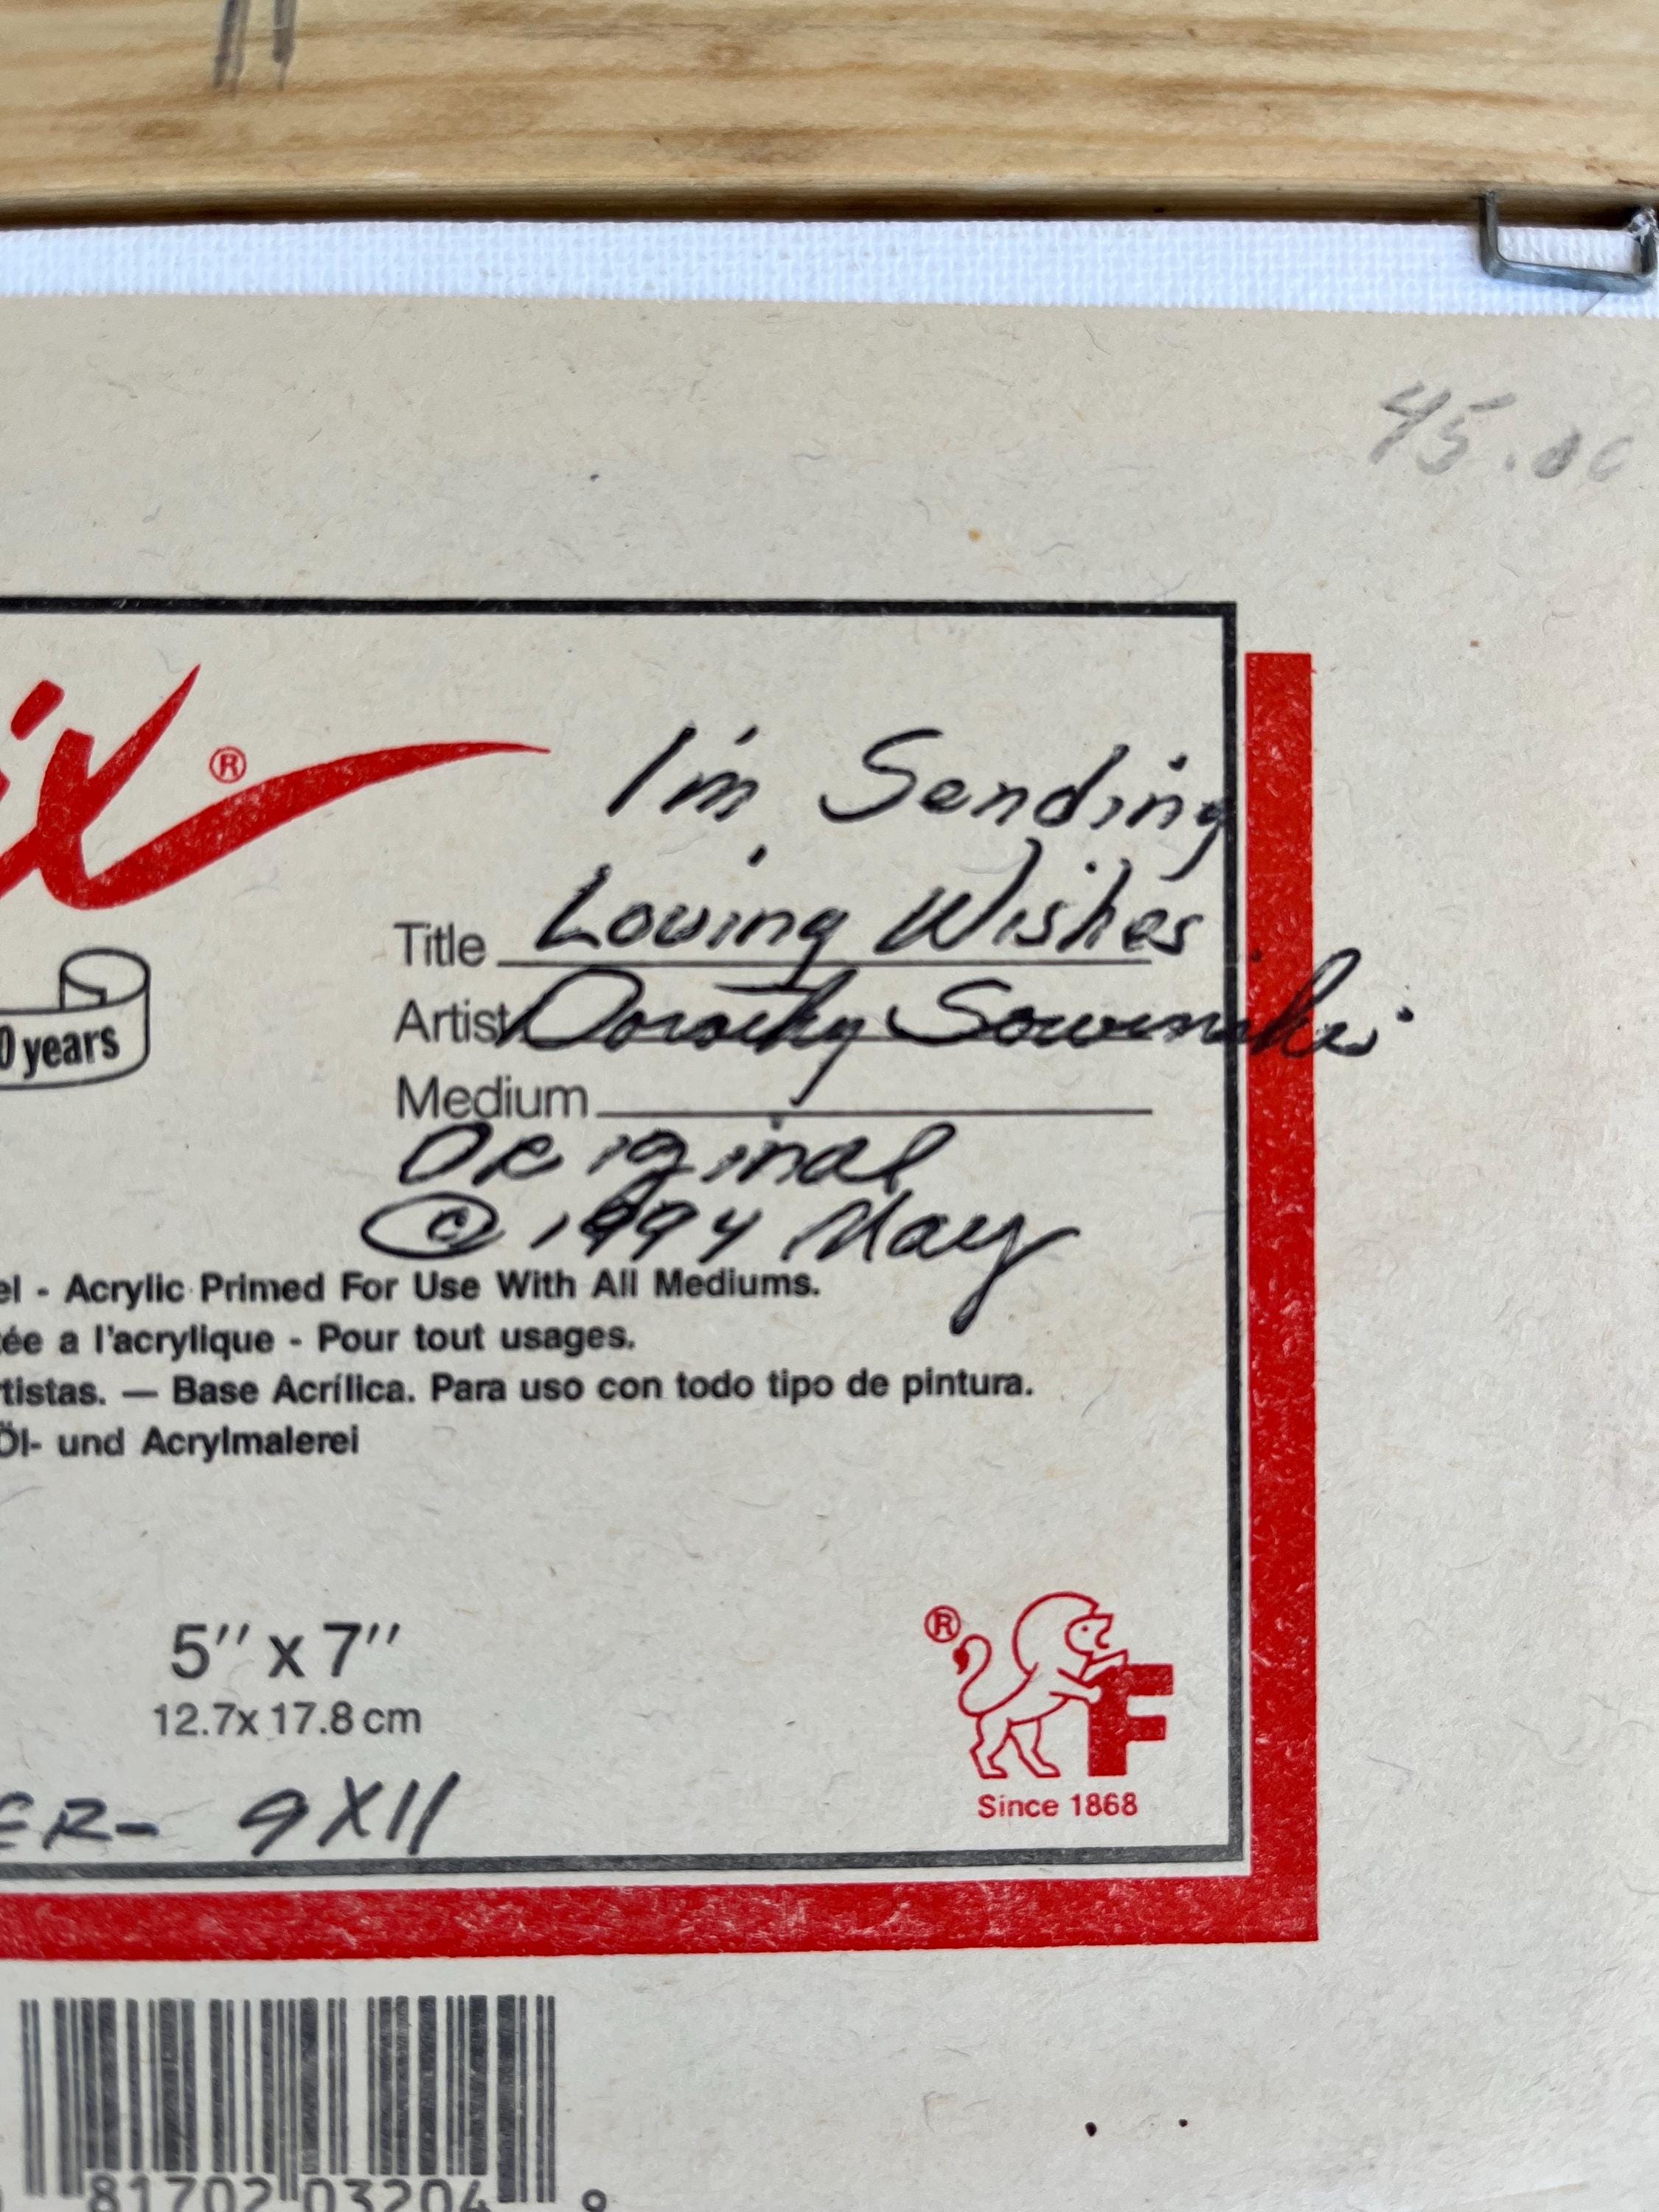 45.00
ix®
I'm Sending
Title Loving Wishes
0 years
Artist Dorothy Sowinski
Medium
Original
© 1994 May
el - Acrylic Primed For Use With All Mediums.
tée a l'acrylique - Pour tout usages.
rtistas. — Base Acrílica. Para uso con todo tipo de pintura.
Öl- und Acrylmalerei
5" x 7"
12.7x 17.8 cm
®
F
Since 1868
ER- 9X11
81702 03204 9